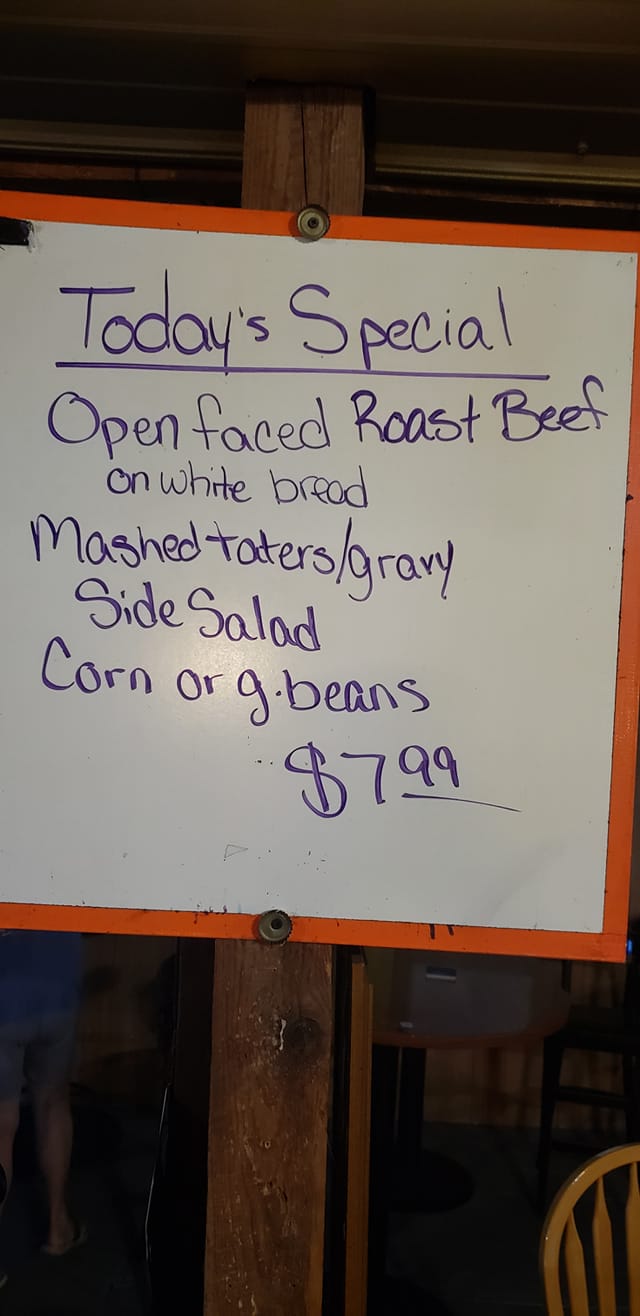 Today's Special
Open faced Roast Beef
on white bread
Mashed taters/gravy
Side Salad
Corn or g.beans
$799